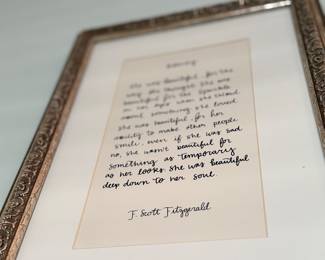 she was beautiful, for the
way she thought. she was
beautiful for the sparkle
in her eyes when she talked
about something she loved.
she was beautiful for her
ability to make other people
smile, even if she was sad
no, she wasn't beautiful for
something as temporary
as her looks. she was beautiful
deep down to her soul.
F. Scott Fitzgerald